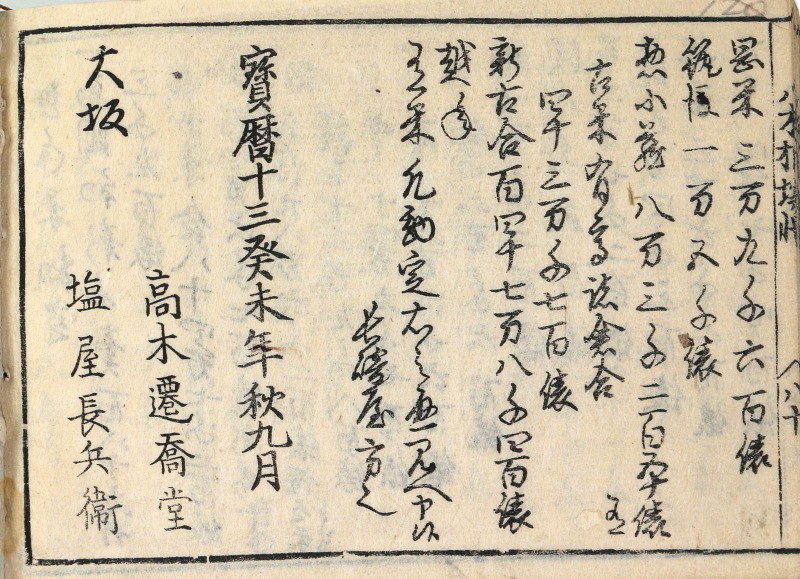 岡米 三万九千六百俵
筑後 一万五千俵
惣小兼 八万三千二百卆俵
古米有高諸倉合
四十三万千七百俵
新古合百四十七万八千四百俵
越年
米凡勘定右之通
長崎屋
寶暦十三癸未年秋九月
高木遷喬堂
大坂
塩屋長兵衛
八十